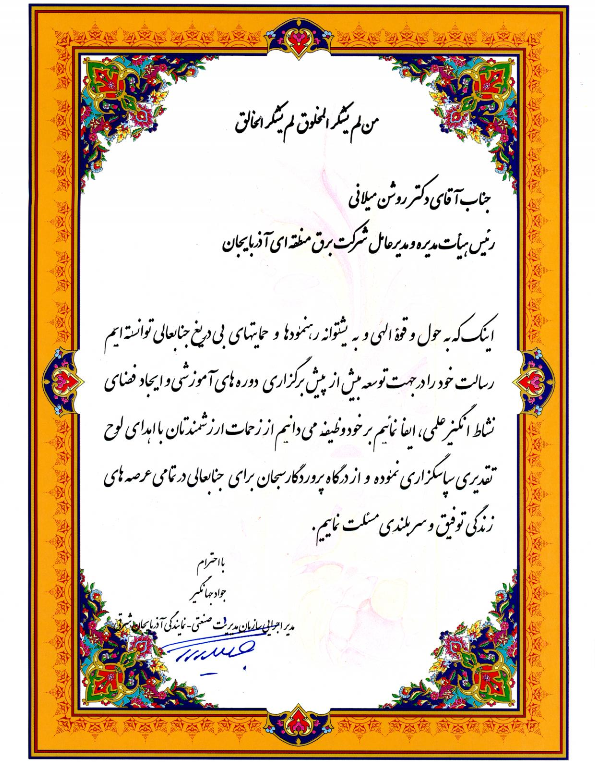 من لم یشکر المخلوق لم یشکر الخالق
جناب آقای دکتر روشن میلانی
رئیس هیأت مدیره و مدیرعامل شرکت برق منطقه ای آذربایجان
اینک که به حول و قوۀ الهی و به پشتوانه رهنمودها و حمایتهای بی دریغ جنابعالی توانسته ایم
رسالت خود را در جهت توسعه بیش از پیش برگزاری دوره های آموزشی و ایجاد فضای
نشاط انگیز علمی، ایفا نمائیم بر خود وظیفه می دانیم از زحمات ارزشمندتان با اهدای لوح
تقدیری سپاسگزاری نموده و از درگاه پروردگار سبحان برای جنابعالی در تمامی عرصه های
زندگی توفیق و سربلندی مسئلت نماییم.
با احترام
جواد جهانگیر
مدیر اجرایی سازمان مدیریت صنعتی - نمایندگی آذربایجان شرقی